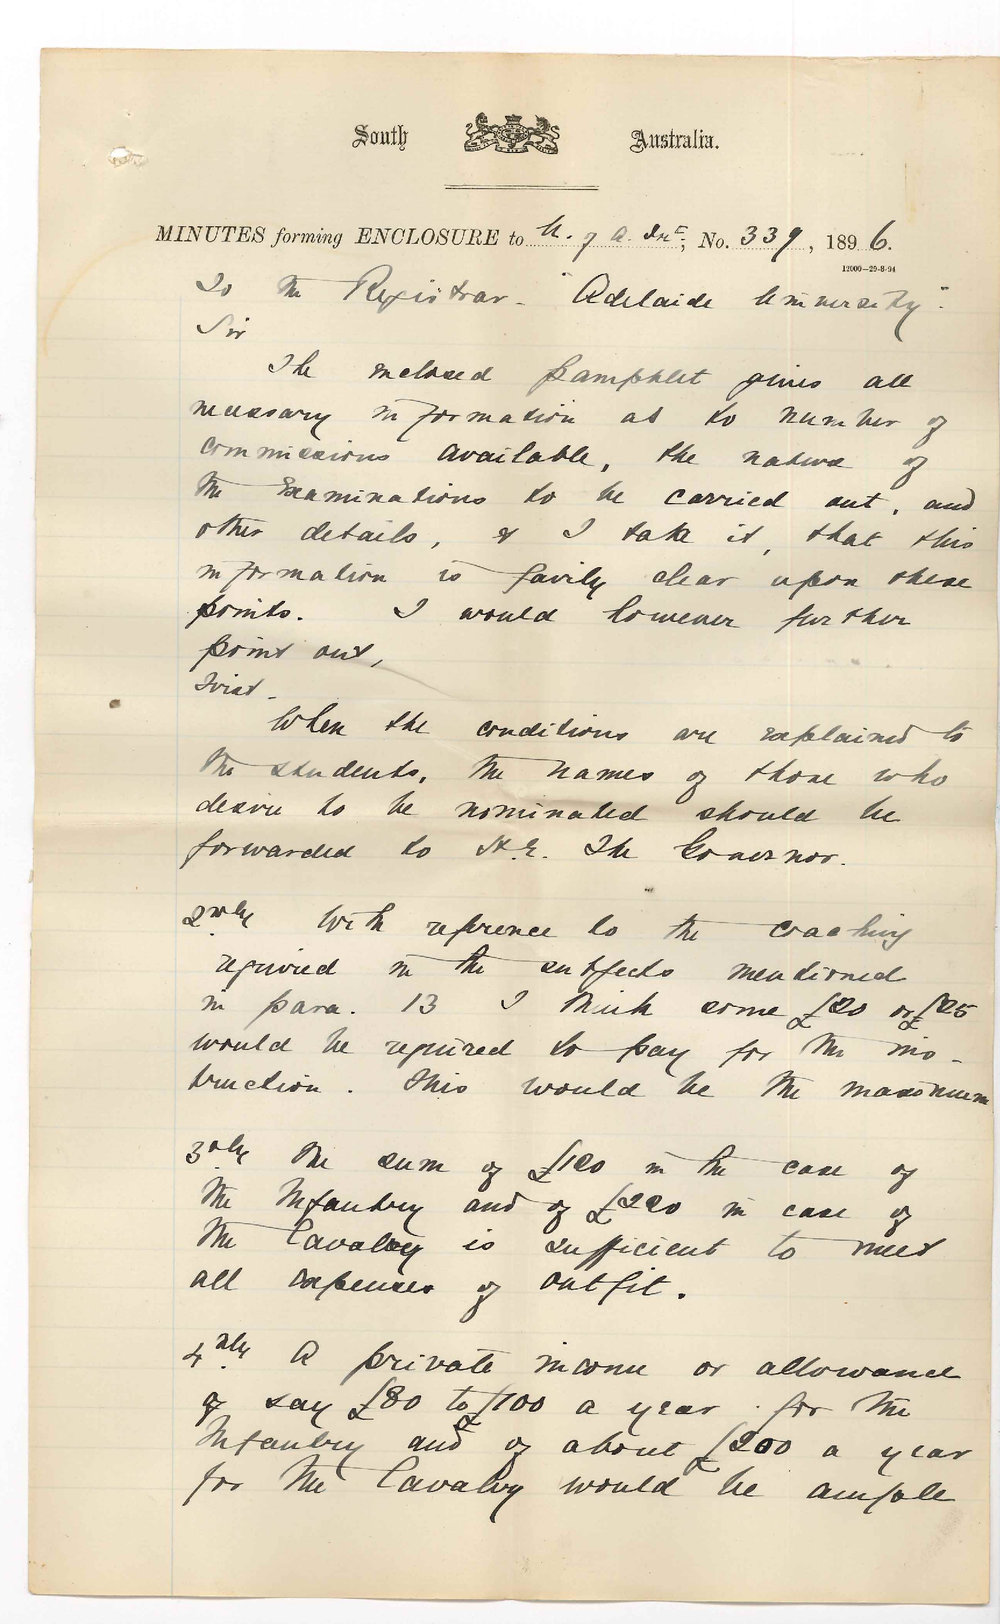 South Australia.
MINUTES forming ENCLOSURE to U. of A. , No. 339, 1896.
12000—29-8-94
To the Registrar - "Adelaide University".
Sir
The enclosed pamphlet gives all
necessary information as to number of
commissions available, the nature of
the Examinations to be carried out, and
other details, & I take it, that this
information is fairly clear upon these
points. I would however further
point out,
First -
When the conditions are explained to
the students, the names of those who
desire to be nominated should be
forwarded to H.E. The Governor.
2ndly With reference to the coaching
required in the subjects mentioned
in para. 13 I think some £20 or £25
would be required to pay for the ins-
truction. This would be the maximum
3rdly The sum of £120 in the case of
the Infantry and of £220 in case of
the Cavalry is sufficient to meet
all expenses of outfit.
4thly A private income or allowance
of say £80 to £100 a year for the
Infantry and of about £200 a year
for the Cavalry would be ample